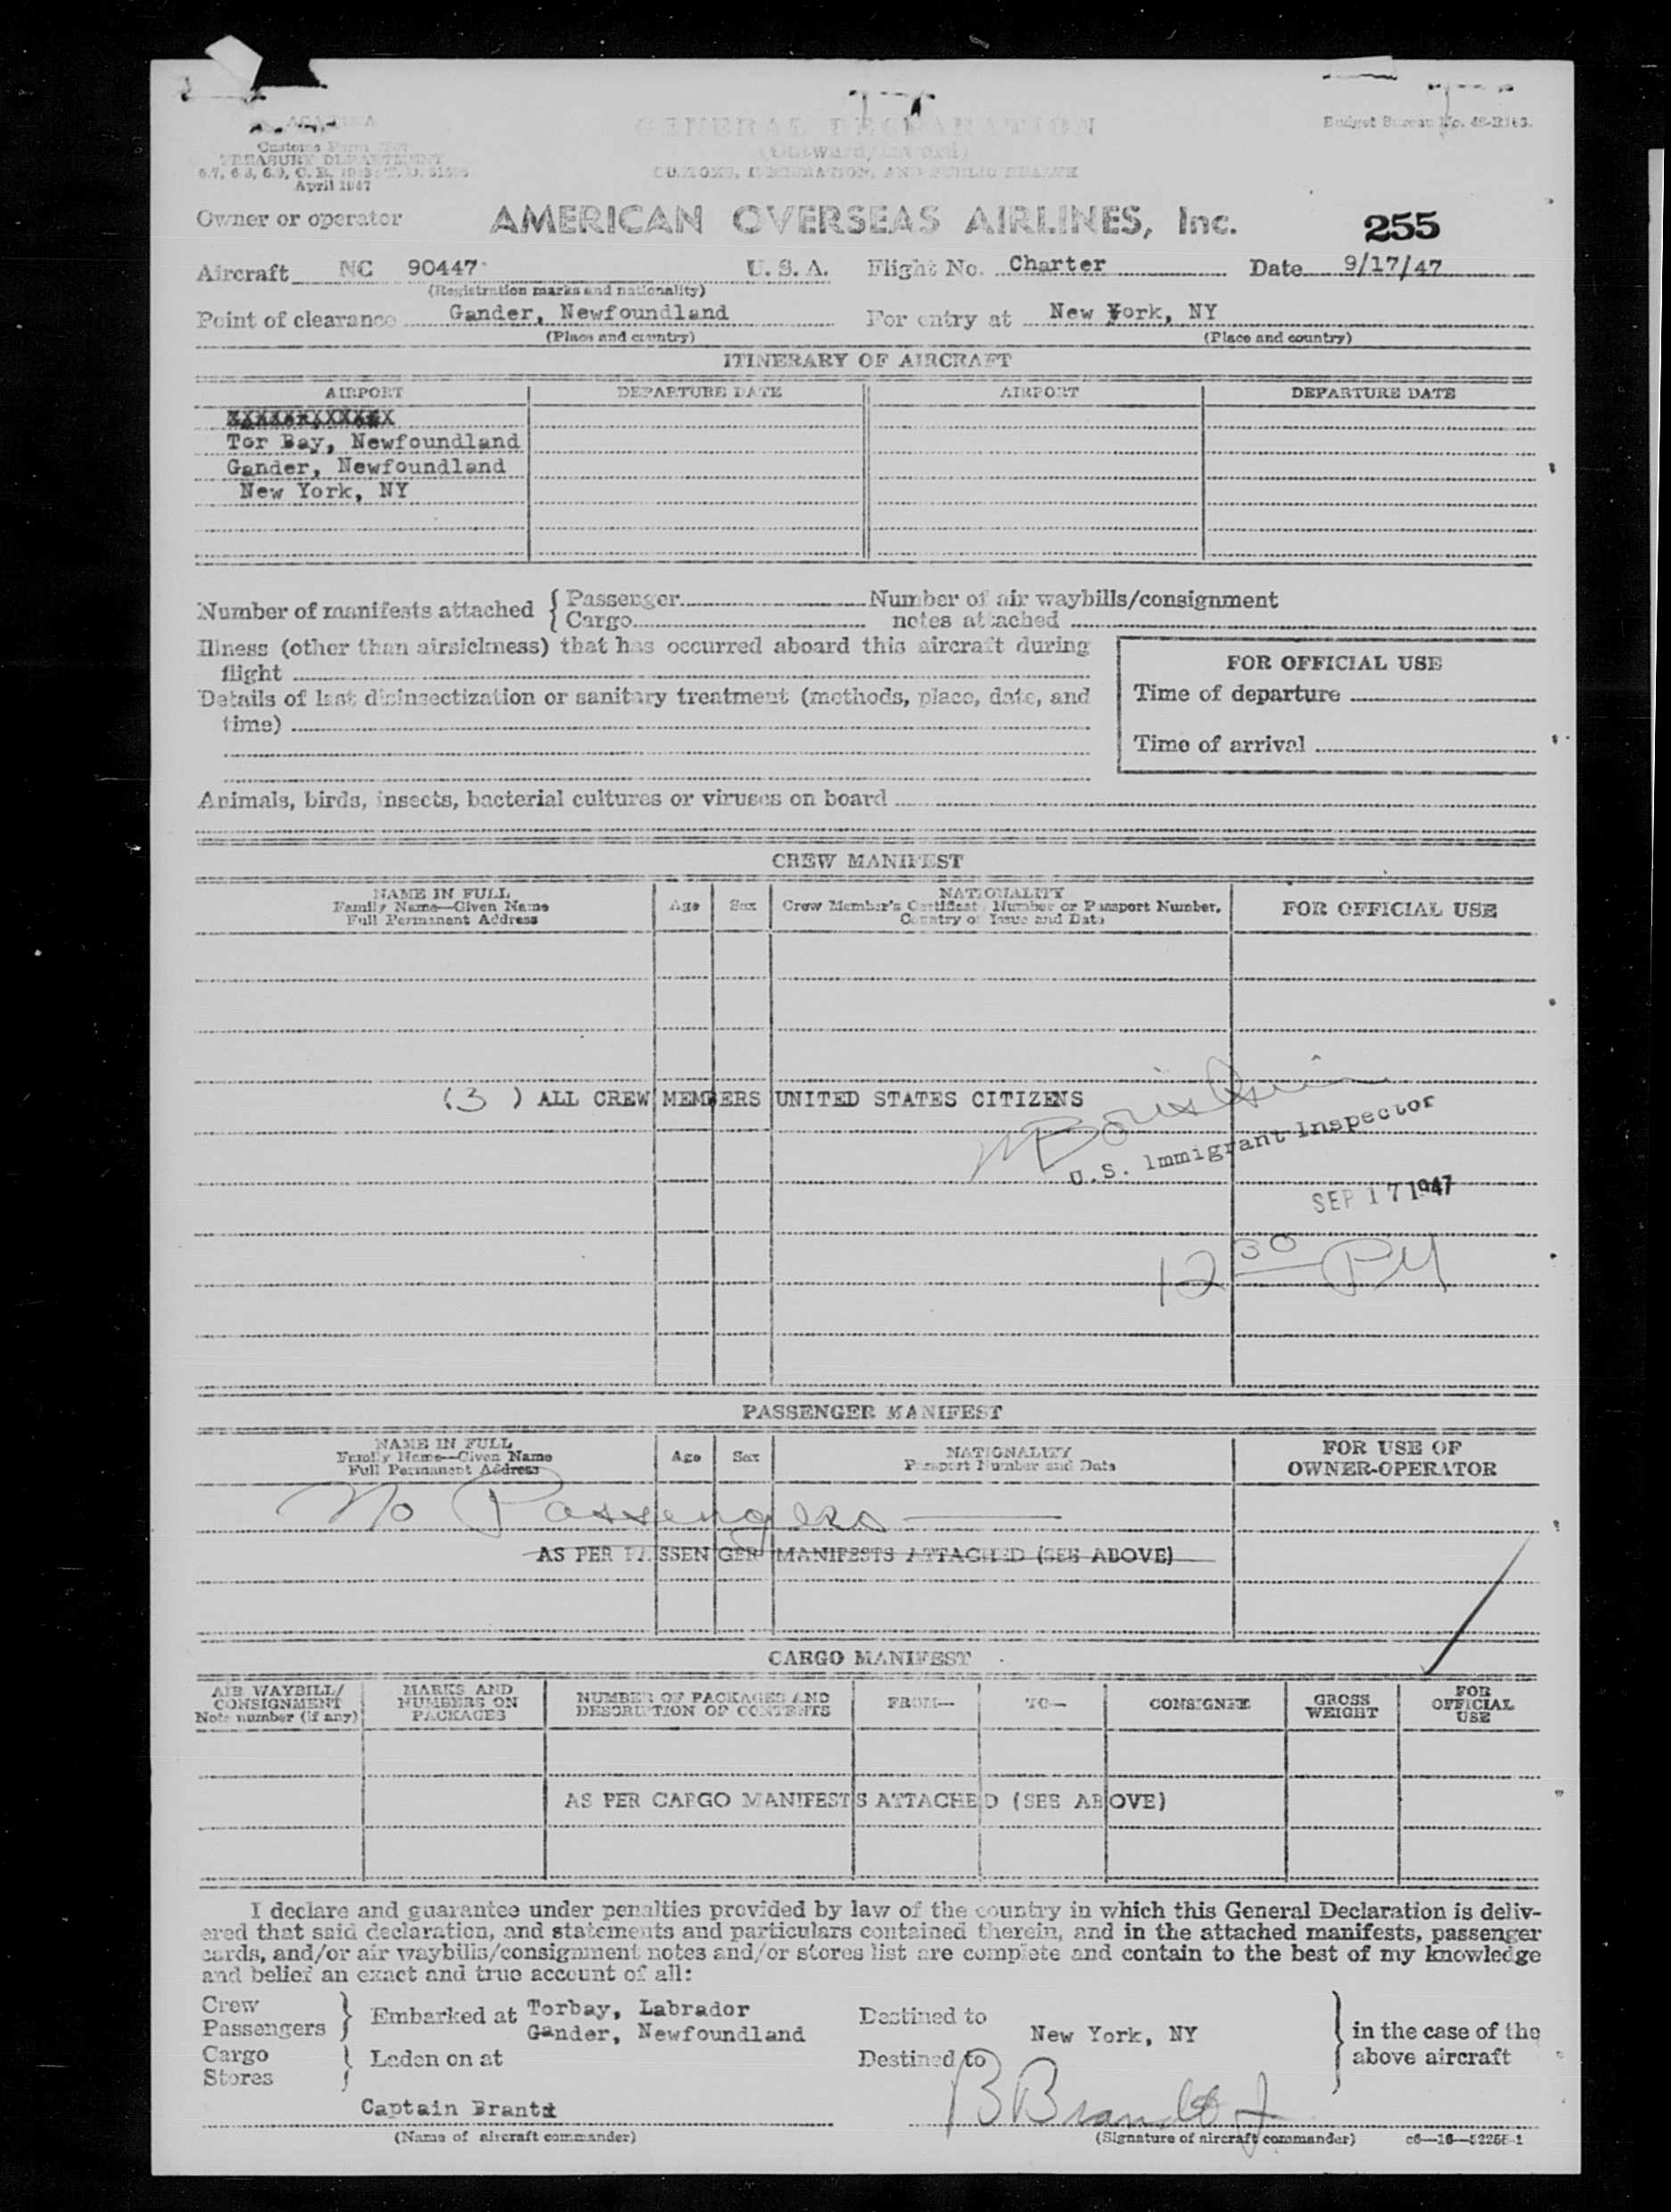 Customs Form
TREASURY DEPARTMENT
April 1947
GENERAL DECLARATION
(Outward/Inward)
CUSTOMS, IMMIGRATION, AND PUBLIC HEALTH
Budget Bureau No. 48-R163.
Owner or operator AMERICAN OVERSEAS AIRLINES, Inc. 255
Aircraft NC 90447 U. S. A. Flight No. Charter Date 9/17/47
(Registration marks and nationality)
Point of clearance Gander, Newfoundland For entry at New York, NY
(Place and country) (Place and country)
ITINERARY OF AIRCRAFT
AIRPORT DEPARTURE DATE AIRPORT DEPARTURE DATE
Tor Bay, Newfoundland
Gander, Newfoundland
New York, NY
Number of manifests attached { Passenger Number of air waybills/consignment
Cargo notes attached
Illness (other than airsickness) that has occurred aboard this aircraft during
flight
Details of last disinsectization or sanitary treatment (methods, place, date, and
time)
FOR OFFICIAL USE
Time of departure
Time of arrival
Animals, birds, insects, bacterial cultures or viruses on board
CREW MANIFEST
NAME IN FULL
Family Name—Given Name
Full Permanent Address
Age Sex
NATIONALITY
Crew Member's Certificate Number or Passport Number,
Country of Issue and Date
FOR OFFICIAL USE
(3) ALL CREW MEMBERS UNITED STATES CITIZENS
U.S. Immigrant Inspector
SEP 17 1947
12 30 PM
PASSENGER MANIFEST
NAME IN FULL
Family Name—Given Name
Full Permanent Address
Age Sex
NATIONALITY
Passport Number and Date
FOR USE OF
OWNER-OPERATOR
No Passengers
AS PER PASSENGER MANIFESTS ATTACHED (SEE ABOVE)
CARGO MANIFEST
AIR WAYBILL/
CONSIGNMENT
Note number (if any)
MARKS AND
NUMBERS ON
PACKAGES
NUMBER OF PACKAGES AND
DESCRIPTION OF CONTENTS
FROM— TO— CONSIGNEE
GROSS
WEIGHT
FOR
OFFICIAL
USE
AS PER CARGO MANIFESTS ATTACHED (SEE ABOVE)
I declare and guarantee under penalties provided by law of the country in which this General Declaration is deliv-
ered that said declaration, and statements and particulars contained therein, and in the attached manifests, passenger
cards, and/or air waybills/consignment notes and/or stores list are complete and contain to the best of my knowledge
and belief an exact and true account of all:
Crew
Passengers } Embarked at Torbay, Labrador
Gander, Newfoundland
Destined to New York, NY
Cargo
Stores } Laden on at Destined to
} in the case of the
above aircraft
Captain Brantt
B Brandt Jr
(Name of aircraft commander) (Signature of aircraft commander) c6—16—52265-1